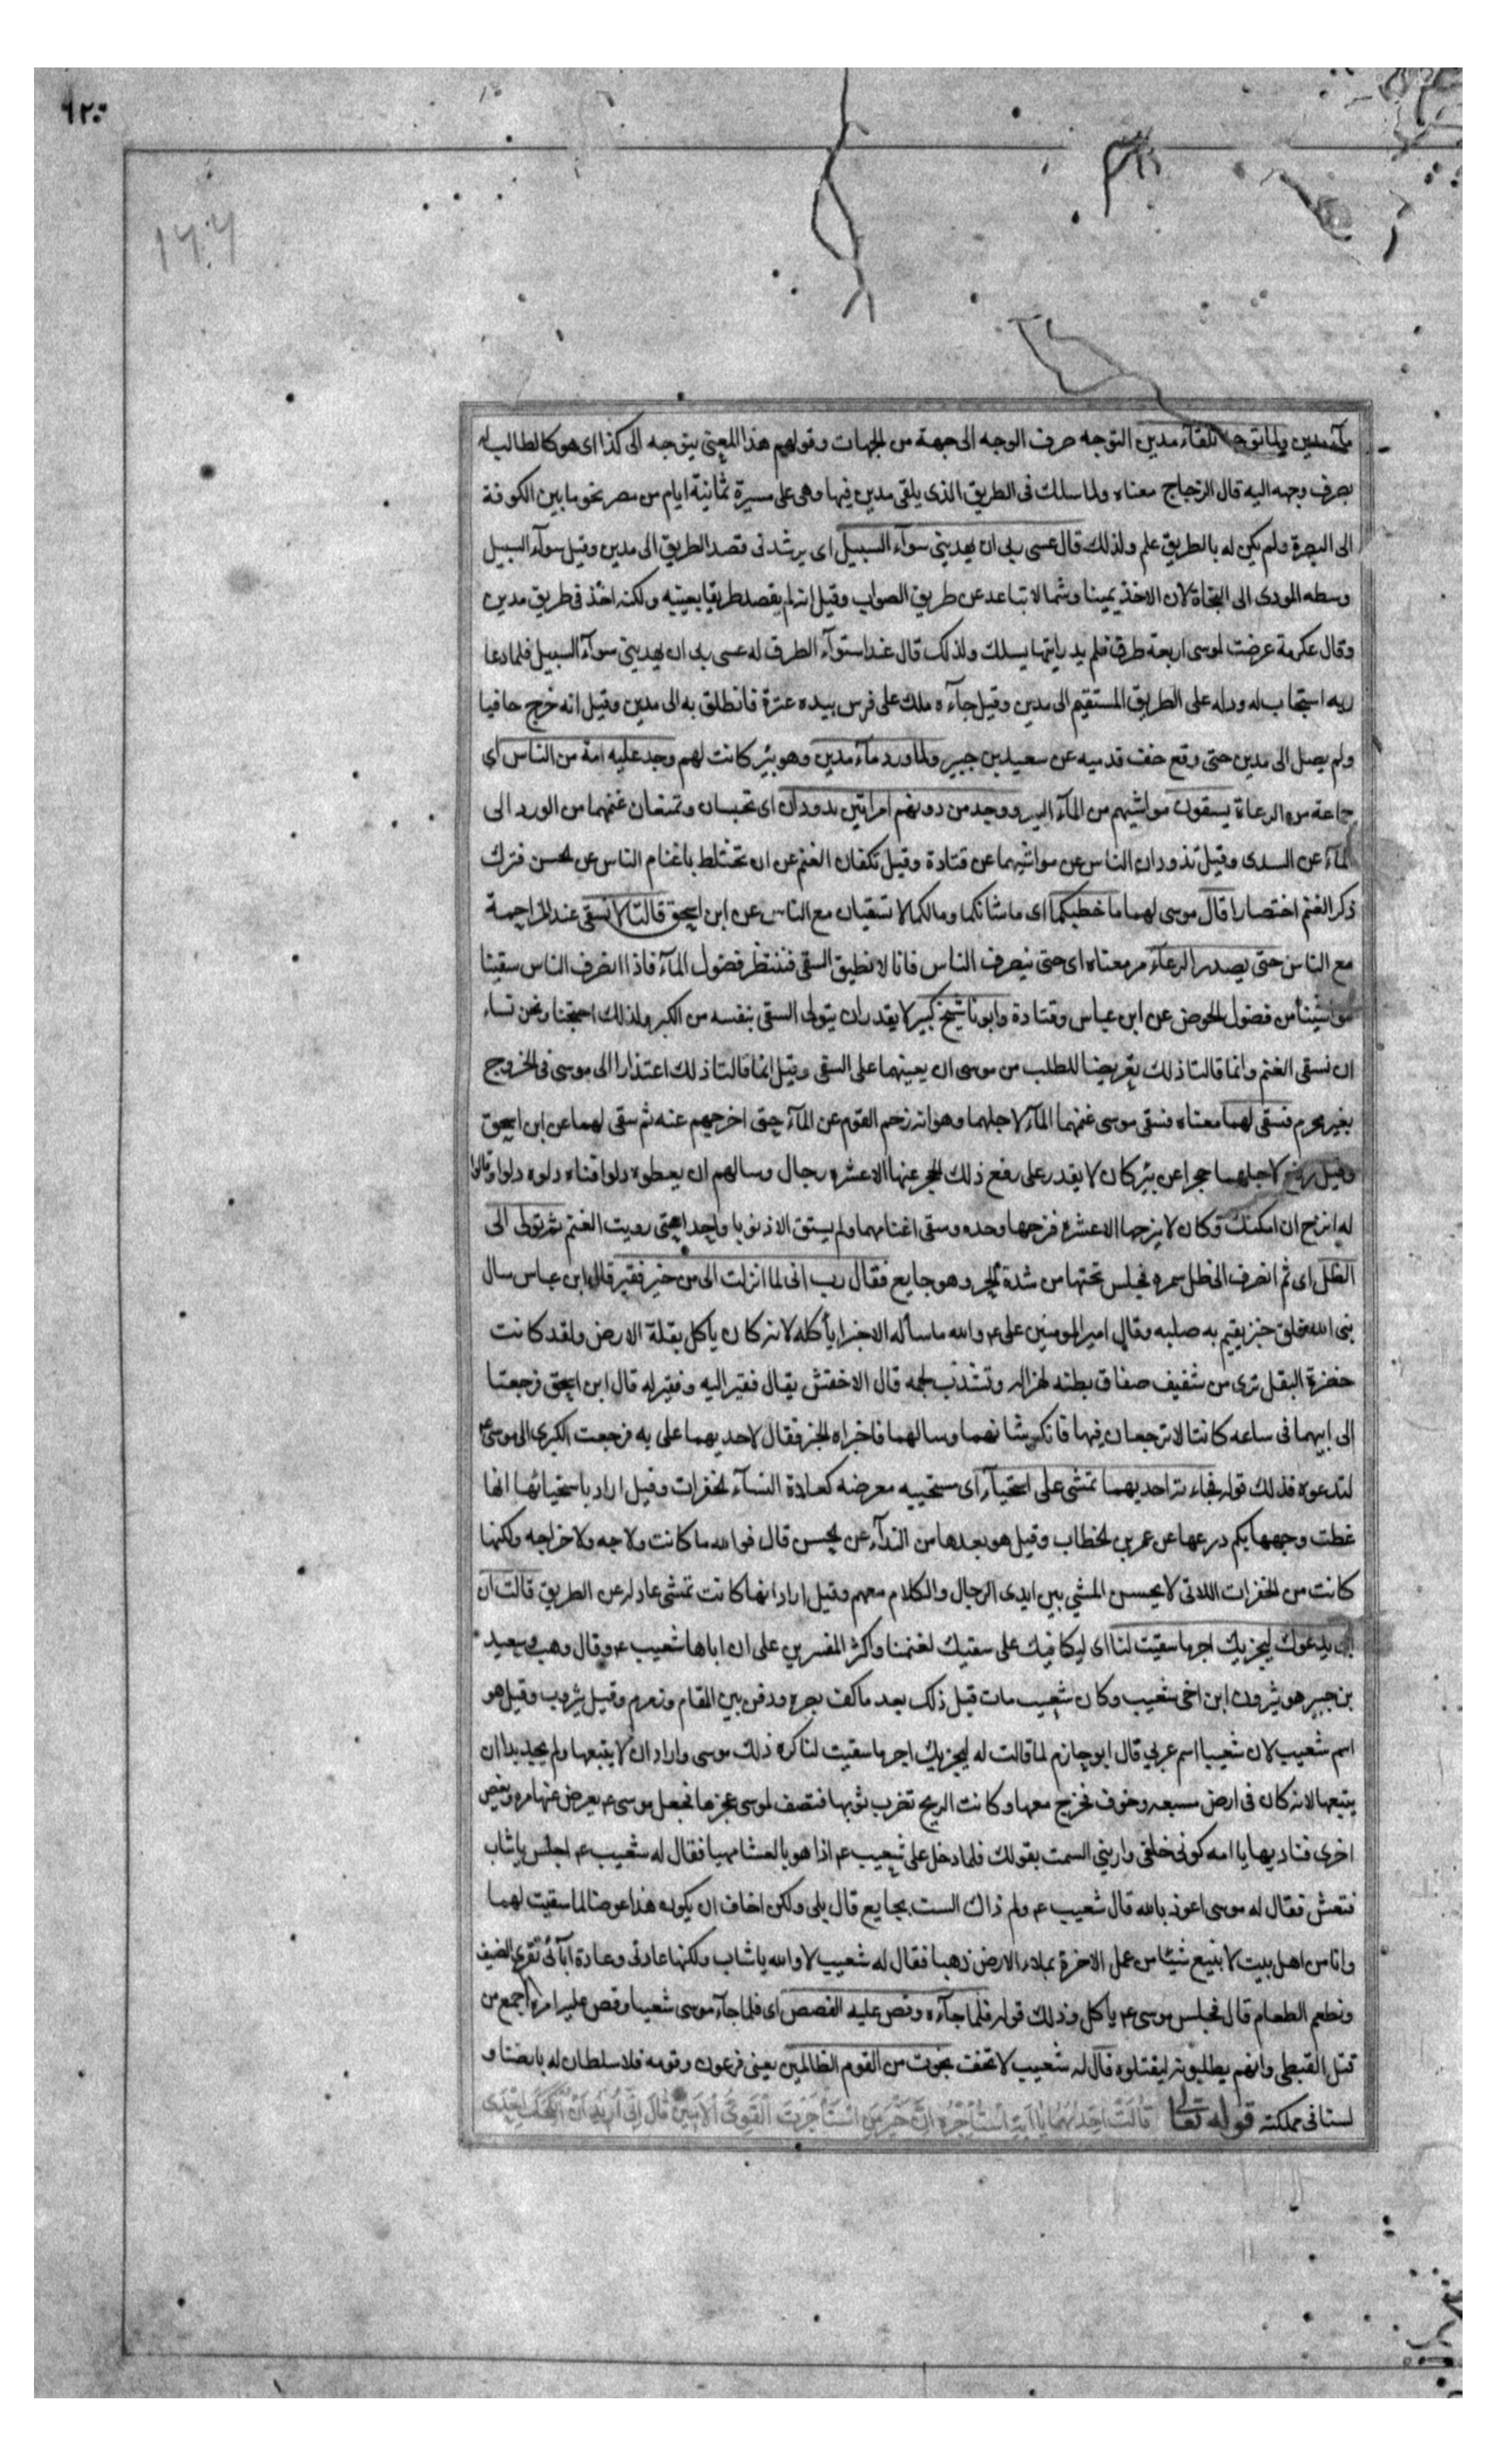 ٦٢٠
١٦٠٧
ماء مدين ولما توجه تلقآء مدين التوجه صرف الوجه الى جهة من الجهات وقولهم هذا المعنى يتوجه الى كذا اى هو كالطالب له
بصرف وجهه اليه قال الزجاج معناه ولما سلك فى الطريق الذى يلقى مدين فيها وهى على مسيرة ثمانية ايام من مصر نحو ما بين الكوفة
الى البصرة ولم يكن له بالطريق علم ولذلك قال عسى ربى ان يهدينى سوآء السبيل اى يرشدنى قصد الطريق الى مدين وقيل سوآء السبيل
وسطه المودى الى النجاة لان الاخذ يمينا وشمالا تباعد عن طريق الصواب وقيل انه لم يقصد طريقا بعينه ولكنه اخذ فى طريق مدين
وقال عكرمة عرضت لموسى اربعة طرق فلم يدر ايتها يسلك ولذلك قال عند استوآء الطرق له عسى ربى ان يهدينى سوآء السبيل فلما دعا
ربه استجاب له ودله على الطريق المستقيم الى مدين وقيل جآءه ملك على فرس بيده عنزة فانطلق به الى مدين وقيل انه خرج حافيا
ولم يصل الى مدين حتى وقع خف قدميه عن سعيد بن جبير ولما ورد مآء مدين وهو بئر كانت لهم وجد عليه امة من الناس اى
جماعة من الرعاة يسقون مواشيهم من المآء البير ووجد من دونهم امراتين تذودان اى تحبسان وتمنعان غنمهما من الورود الى
المآء عن السدى وقيل تذودان الناس عن مواشيهما عن قتادة وقيل تكفان الغنم عن ان تختلط باغنام الناس عن الحسن فترك
ذكر الغنم اختصارا قال موسى لهما ما خطبكما اى ما شانكما وما لكما لا تسقيان مع الناس عن ابن اسحق قالتا لا نسقى عند المزاحمة
مع الناس حتى يصدر الرعآء مر معناه اى حتى ينصرف الناس فانا لا نطيق السقى فننتظر فضول المآء فاذا انصرف الناس سقينا
مواشينا من فضول الحوض عن ابن عباس وقتادة وابونا شيخ كبير لا يقدر ان يتولى السقى بنفسه من الكبر ولذلك احتجنا ونحن نساء
ان نسقى الغنم وانما قالتا ذلك تعريضا للطلب من موسى ان يعينهما على السقى وقيل انما قالتا ذلك اعتذارا الى موسى فى الخروج
بغير محرم فسقى لهما معناه فسقى موسى غنمهما المآء لاجلهما وهو انه زحم القوم عن المآء حتى اخرجهم عنه ثم سقى لهما عن ابن اسحق
وقيل رفع لاجلهما حجرا عن بئر كان لا يقدر على رفع ذلك الحجر عنها الا عشره رجال وسالهم ان يعطوه دلوا فناولوه دلوا وقالوا
له انزح ان امكنك وكان لا ينزحها الا عشره فنزحها وحده وسقى اغنامهما ولم يستق الا ذنوبا واحدا حتى رويت الغنم ثم تولى الى
الظل اى ثم انصرف الى ظل سمره فجلس تحتها من شدة الحر وهو جايع فقال رب انى لما انزلت الى من خير فقير قال ابن عباس سال
نبى الله فلق خبز يقيم به صلبه وقال امير المومنين على ع والله ما سأله الا خبزا يأكله لانه كان يأكل بقلة الارض ولقد كانت
خضرة البقل ترى من شفيف صفاق بطنه لهزاله وتشذب لحمه قال الاخفش يقال فقير اليه وفقير له قال ابن اسحق فرجعتا
الى ابيهما فى ساعه كانتا لا ترجعان فيها فانكر شانهما وسالهما فاخبراه الخبر فقال لاحديهما على به فرجعت الكبرى الى موسى ع
لتدعوه فذلك قوله فجاءته احديهما تمشى على استحيآء اى مستحييه معرضه كعادة النسآء الخفرات وقيل اراد باستحيائها انها
غطت وجهها بكم درعها عن عمر بن الخطاب وقيل هو بعدها من الندآء عن الحسن قال فوالله ما كانت ولاجه ولا خراجه ولكنها
كانت من الخفرات اللاتى لا يحسن المشي بين ايدى الرجال والكلام معهم وقيل اراد انها كانت تمشى عادله عن الطريق قالت ان
ابى يدعوك ليجزيك اجر ما سقيت لنا اى ليكافيك على سقيك لغنمنا واكثر المفسرين على ان اباها شعيب ع وقال وهب وسعيد
بن جبير هو يثرون ابن اخى شعيب وكان شعيب مات قبل ذلك بعد ما كف بصره ودفن بين المقام وزمزم وقيل يثروب وقيل هو
اسم شعيب لان شعيبا اسم عربي قال ابو حازم لما قالت له ليجزيك اجر ما سقيت لنا كره ذلك موسى واراد ان لا يتبعها ولم يجد بدا ان
يتبعها لانه كان فى ارض مسبعه وخوف فخرج معها وكانت الريح تضرب ثوبها فتصف لموسى عجزها فجعل موسى ع يعرض عنها مره ويغض
اخرى فناديها يا امه كونى خلفى وارينى السمت بقولك فلما دخل على شعيب ع اذا هو بالعشا مهيا فقال له شعيب ع اجلس يا شاب
فتعش فقال له موسى اعوذ بالله قال شعيب ع ولم ذاك الست بجايع قال بلى ولكن اخاف ان يكون هذا عوضا لما سقيت لهما
وانا من اهل بيت لا نبيع شيئا من عمل الاخرة بملاء الارض ذهبا فقال له شعيب لا والله يا شاب ولكنها عادتى وعادة آبآئى نقرى الضيف
ونطعم الطعام قال فجلس موسى ع ياكل وذلك قوله فلما جآءه وقص عليه القصص اى فلما جآء موسى شعيبا وقص عليه امره اجمع من
قتل القبطى وانهم يطلبونه ليقتلوه قال له شعيب لا تخف نجوت من القوم الظالمين يعنى فرعون وقومه فلا سلطان له بارضنا و
لسنا فى مملكته قوله تعالى قَالَتْ اِحْدٰيهُمَا يٰا اَبَتِ اسْتَأْجِرْهُ اِنَّ خَيْرَ مَنِ اسْتَأْجَرْتَ الْقَوِىُّ الْاَمِينُ قَالَ اِنِّى اُرِيدُ اَنْ اُنْكِحَكَ اِحْدَى